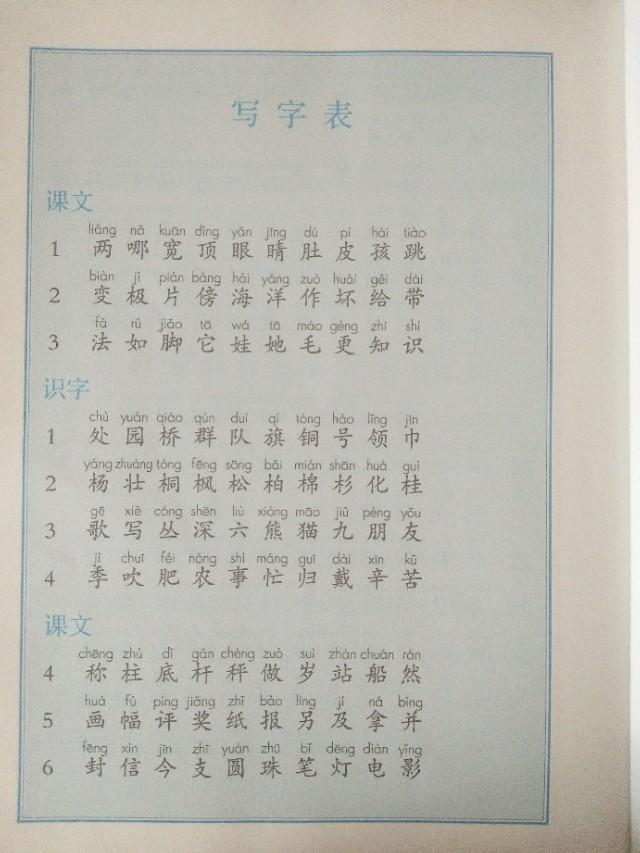 写字表
课文
liǎng nǎ kuān dǐng yǎn jīng dù pí hái tiào
1 两 哪 宽 顶 眼 睛 肚 皮 孩 跳
biàn jí piàn bàng hǎi yáng zuò huài gěi dài
2 变 极 片 傍 海 洋 作 坏 给 带
fǎ rú jiǎo tā wá tā máo gèng zhī shí
3 法 如 脚 它 娃 她 毛 更 知 识
识字
chù yuán qiáo qún duì qí tóng hào lǐng jīn
1 处 园 桥 群 队 旗 铜 号 领 巾
yáng zhuàng tóng fēng sōng bǎi mián shān huà guì
2 杨 壮 桐 枫 松 柏 棉 杉 化 桂
gē xiě cóng shēn liù xióng māo jiǔ péng yǒu
3 歌 写 丛 深 六 熊 猫 九 朋 友
jì chuī féi nóng shì máng guī dài xīn kǔ
4 季 吹 肥 农 事 忙 归 戴 辛 苦
课文
chēng zhù dǐ gǎn chèng zuò suì zhàn chuán rán
4 称 柱 底 杆 秤 做 岁 站 船 然
huà fú píng jiǎng zhǐ bào lìng jí ná bìng
5 画 幅 评 奖 纸 报 另 及 拿 并
fēng xìn jīn zhī yuán zhū bǐ dēng diàn yǐng
6 封 信 今 支 圆 珠 笔 灯 电 影